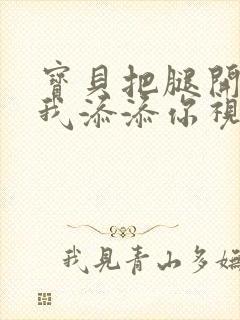 寶貝把腿開
我添添你視
我見青山多嫵